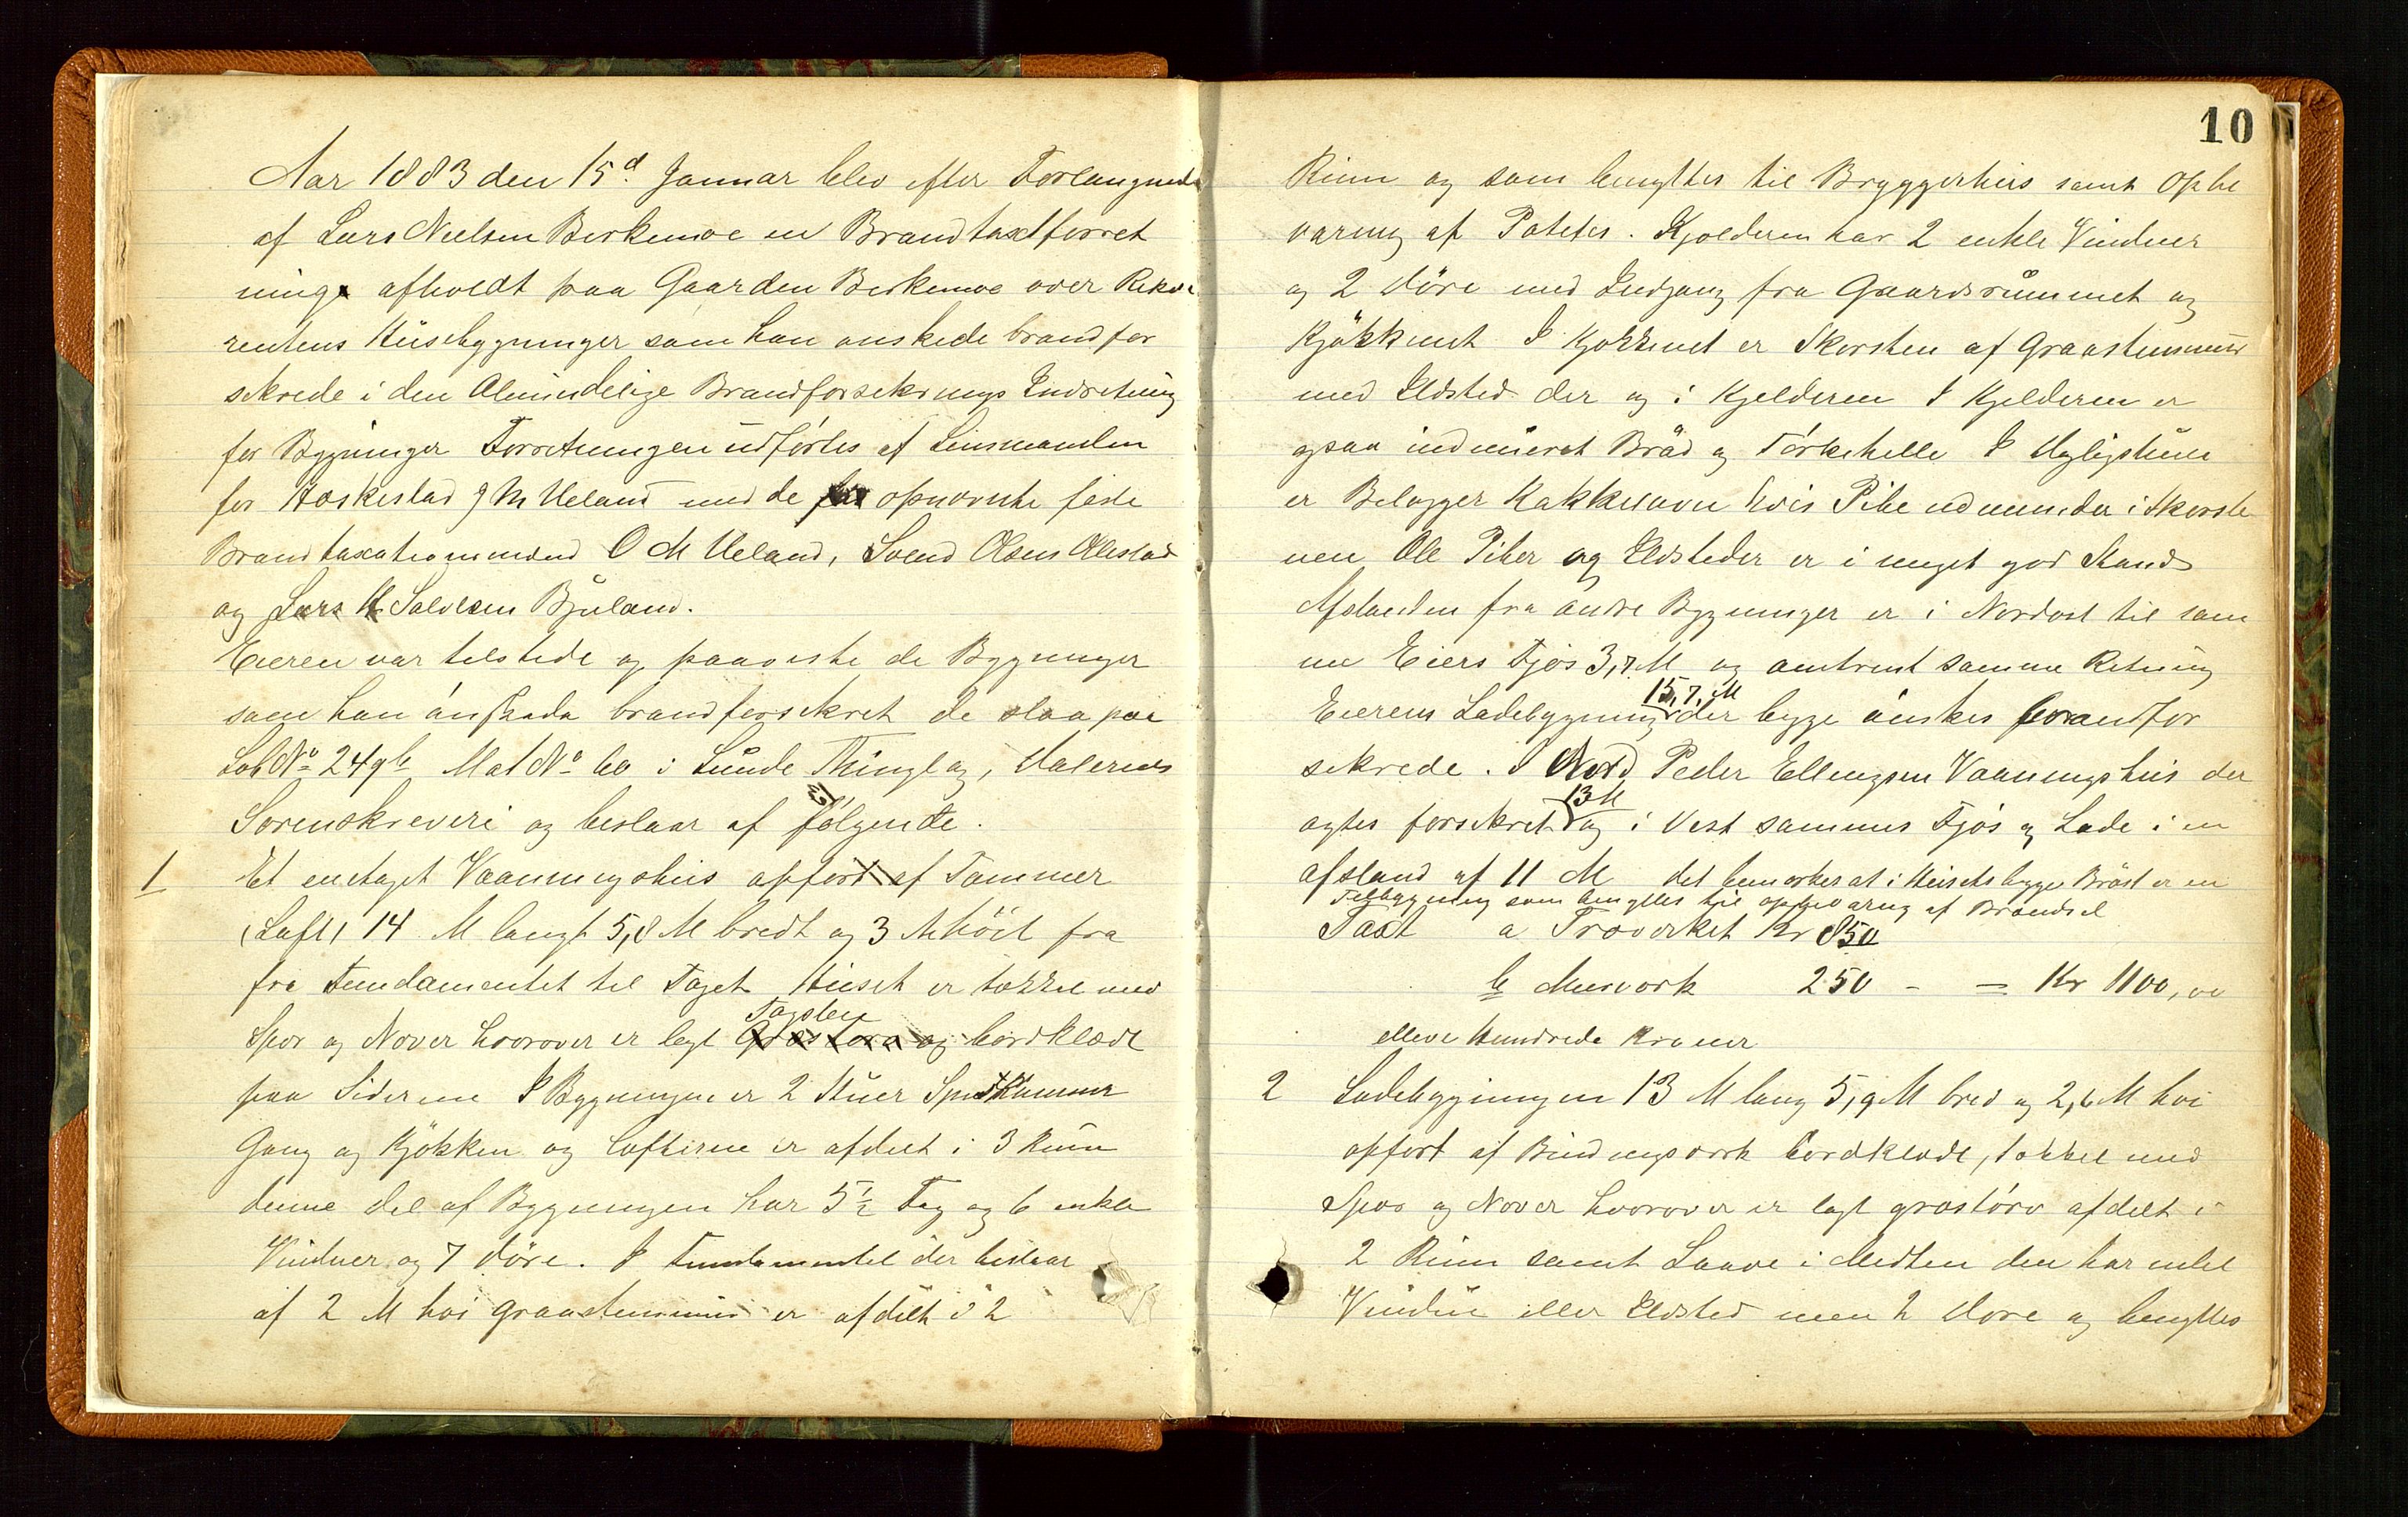 Aar 1883 den 15d. Januar blev efter Forlangende
af Lars Nielsen Birkemoe en Brandtaxtforret
ning afholdt paa Gaarden Birkemoe over Rekvi
rentens Huusebygninger som han onskede brandfor
sikrede i den Almindelige Brandforsikrings Indretning
for Bygninger Forretningen udførtes af Lensmanden
for Heskestad J M Ueland med de opnævnte faste
Brandtaxationsmænd O M Ueland, Svend Olsen Ollestad
og Lars Salvesen Bjuland.
Eieren var tilstede og paaviste de Bygninger
som han ónskede brandforsikret de staa paa
Løb No 249b Mat No 60 i Lunde Thinglag, Dalernes
Sorenskriveri og bestaar af fölgende.
1 Et enetaget Vaaningshuis opført af Tømmer
(Laft) 14 M langt 5,8 M bredt og 3 M höit fra
fra Fundamentet til Taget Huset er tækket med
Spor og Næver hvorover er lagt Tagsten Græstorv og bordklædt
paa Siderne I Bygningen er 2 Stuer Spiskammer
Gang og Kjökken og Lofterne er afdelt i 3 Rum
denne del af Bygningen har 5½ Fag og 6 enkle
Vinduer og 7 döre. I Fundamentet der bestaar
af 2 M höi graastensmur er afdelt i 2
10
Rum og som benyttes til Bryggerhus samt Opbe
varing af Poteter. Kjælderen har 2 enkle Vinduer
og 2 döre med Indgang fra Gaardsrummet og
Kjökkenet I Kjökkenet er Skorsten af Graastensmur
med Ildsted der og i Kjelderen I Kjelderen er
ogsaa indmuret Bräd og Törkehelle I dagligstuen
er Belægger Kakkelovn hvis Pibe udmunder i Skorste
nen Ole Piber og Ildsteder er i meget god Stand
Afstanden fra andre Bygninger er i Nordost til sam
me Eiers Fjøs 3,7 M og omtrent samme Retning
Eierens Ladebygning 15,7 M der begge ónskes brandfor
sikrede. I Nord Peder Ellingsen Vaaningshus der
agtes forsikret 13 M og i Vest sammes Fjös og Lade i en
afstand af 11 M det bemærkes at i Husets begge Bröst er en
Tilbygning som benyttes til opbevaring af Brændsel
Taxt a Træverket Kr 850
b Murværk 250 - = Kr 1100,00
elleve Hundrede Kroner
2 Ladebygningen 13 M lang 5,9 M bred og 2,6 M höi
opfört af Bindingsværk bordklædt, tækket med
Spor og Næver hvorover er lagt græstörv afdelt i
2 Rum samt Laave i Midten den har intet
Vindu eller Ildsted men 2 döre og benyttes